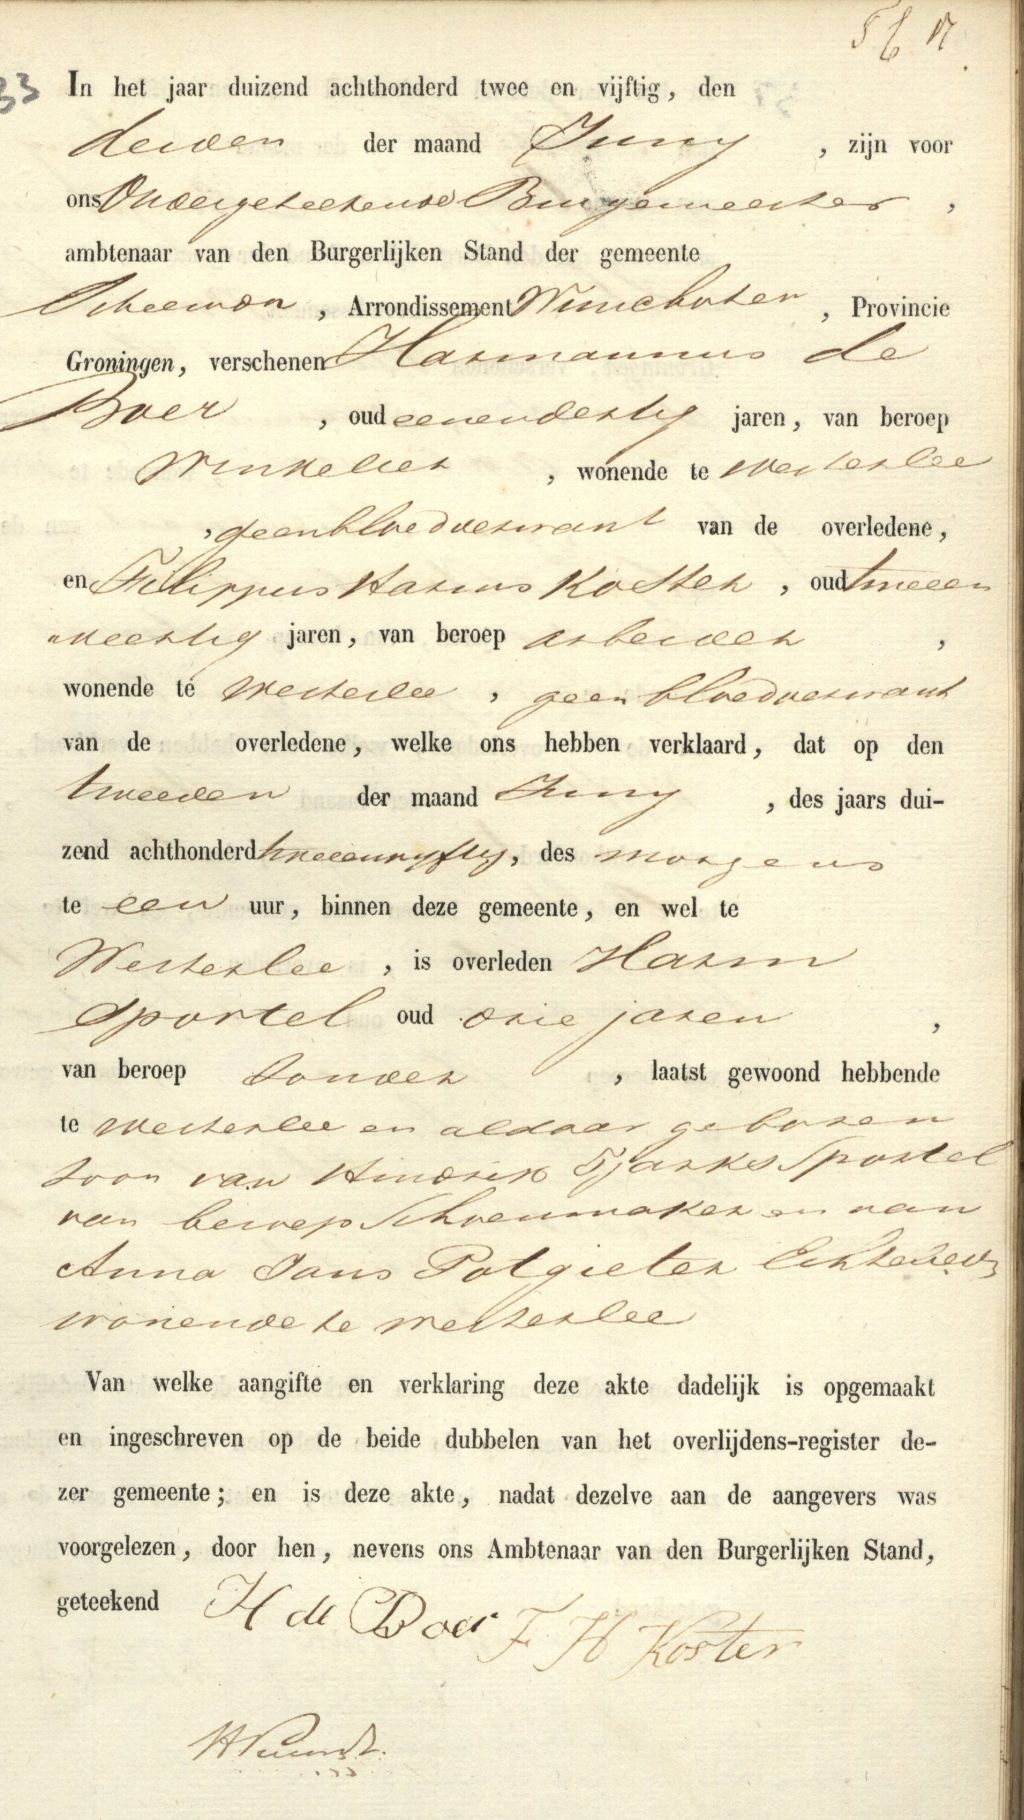 33
In het jaar duizend achthonderd twee en vijftig, den
derden der maand Juny, zijn voor
ons Ondergeteekende Burgemeester,
ambtenaar van den Burgerlijken Stand der gemeente
Scheemda, Arrondissement Winschoten, Provincie
Groningen, verschenen Harmannus de
Boer, oud eenendertig jaren, van beroep
Winkelier, wonende te Westerlee
, geen bloedverwant van de overledene,
en Filippus Harms Koster, oud tweeen
veertig jaren, van beroep arbeider,
wonende te Westerlee, geen bloedverwant
van de overledene, welke ons hebben verklaard, dat op den
tweeden der maand Juny, des jaars dui-
zend achthonderd tweeenvyftig, des morgens
te een uur, binnen deze gemeente, en wel te
Westerlee, is overleden Harm
Sportel oud drie jaren,
van beroep zonder, laatst gewoond hebbende
te Westerlee en aldaar geboren
zoon van Hindrik Tjarks Sportel
van beroep Schoenmaker en van
Anna Jans Potgieter Echtelieden
wonende te Westerlee
Van welke aangifte en verklaring deze akte dadelijk is opgemaakt
en ingeschreven op de beide dubbelen van het overlijdens-register de-
zer gemeente; en is deze akte, nadat dezelve aan de aangevers was
voorgelezen, door hen, nevens ons Ambtenaar van den Burgerlijken Stand,
geteekend H de Boer F H Koster